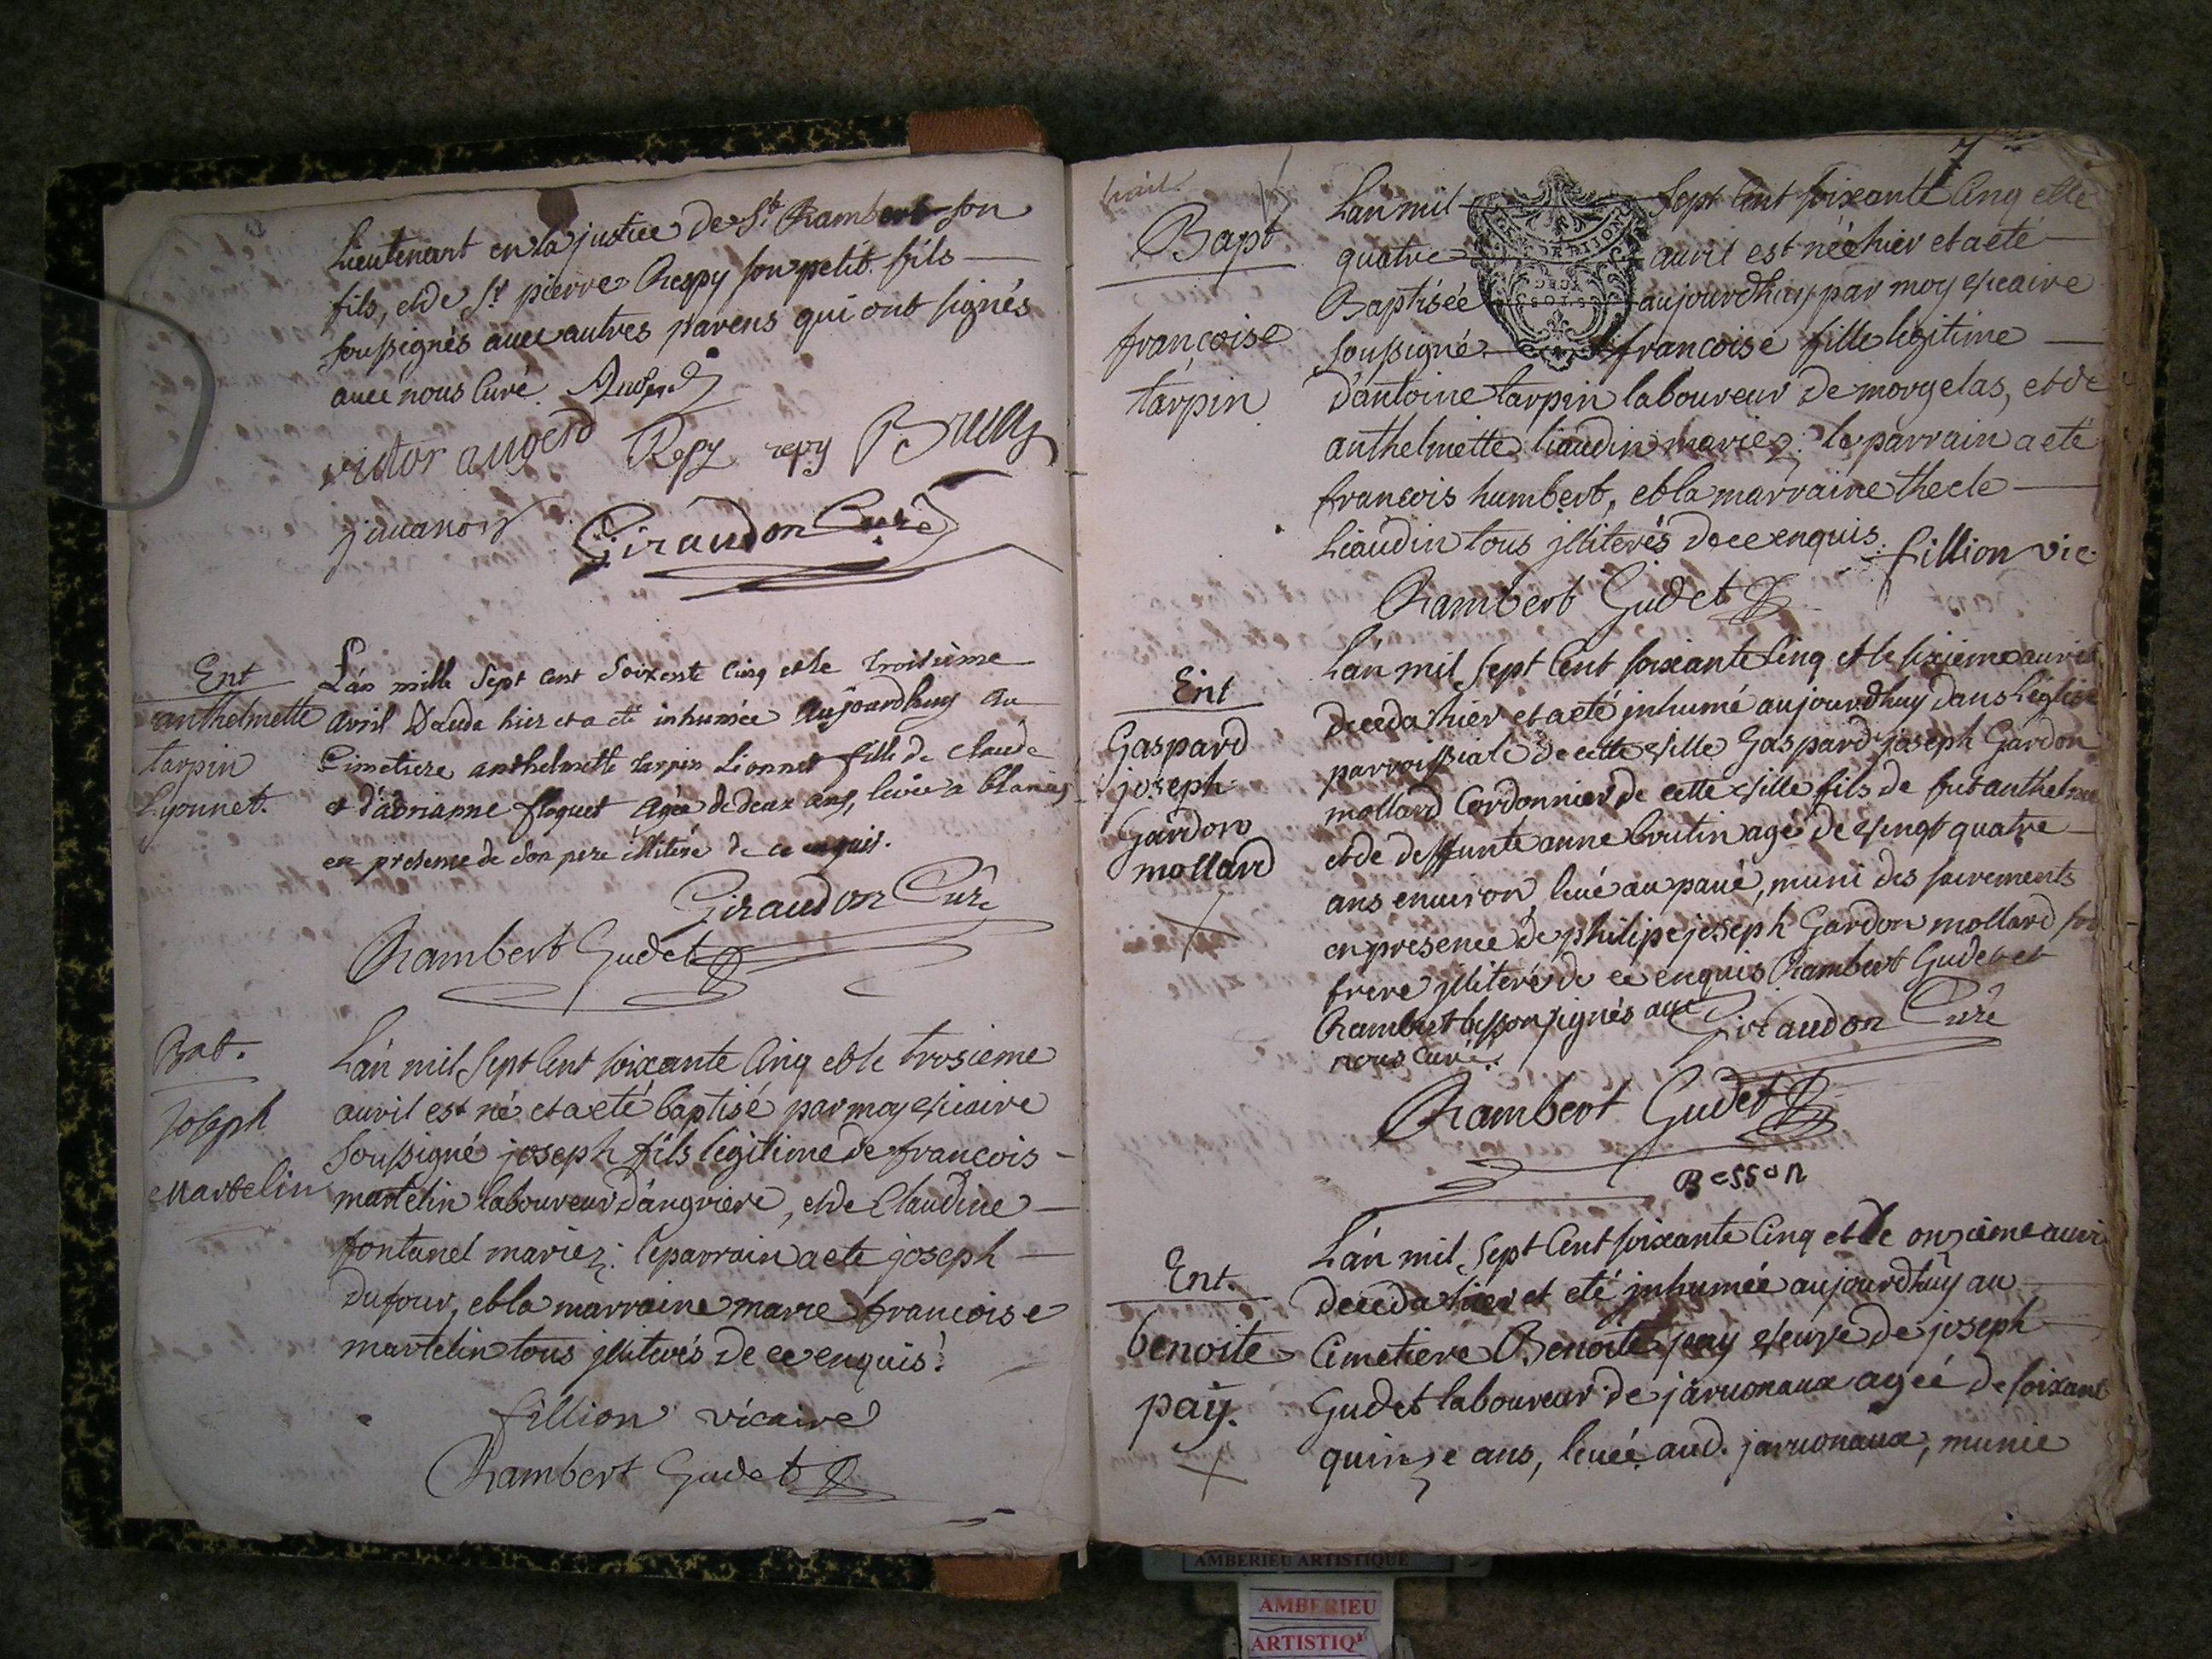 Lieutenant en la justice de St Rambert son
fils, et de Sr pierre Respy son petit fils
soussignés avec autres parens qui ont signés
avec nous Curé. Augerd
victor augerd Repy repy Brun
javanod Giraudon Curé
Ent
anthelmette
tarpin
Lyonnet.
L'an mille Sept cent Soixente Cinq et le troisième
avril Dæceda hier et a eté inhumée aujourdhuy au
Cimetiere anthelmette tarpin Lionnet fille de claude
et d'adrianne floquet agée de deux ans, levée a blanas
en presence de son pere illitéré de ce enquis.
Giraudon Curé
Rambert Gudet
Bat.
Joseph
Martelin
L'an mil Sept Cent soixante Cinq et le trosieme
avril est né et a eté baptisé par moy vicaire
soussigné joseph fils légitime de francois
martelin laboureur d'angriere, et de Claudine
fontanel mariez: le parrain a ete joseph
dufour, et la marraine marie francoise
martelin tous jllitérés de ce enquis.
fillion vicaire
Rambert Gudet
7
Bapt
françoise
tarpin
L'an mil Sept Cent soixante Cinq et le
quatre avril est néé hier et a eté
Baptiséé aujourdhuy par moy vicaire
soussigné francoise fille legitime
d'antoine tarpin laboureur de morgelas, et de
anthelmette liaudin mariez: le parrain a eté
francois humbert, et la marraine thecle
Liaudin tous jllitérés de ce enquis. fillion vic.
Rambert Gudet
Ent
Gaspard
joseph
Gardon
mollard
L'an mil Sept Cent soixante Cinq et le sixieme avril
deceda hier et a eté jnhumé aujourdhuy dans L'église
parroissiale de cette ville Gaspard joseph Gardon
mollard Cordonnier de cette ville fils de fut anthelme
et de deffunte anne boutin agé de vingt quatre
ans environ, levé au pavé, muni des sacrements
en presence de philipe joseph Gardon mollard son
frere jllitéré de ce enquis Rambert Gudet et
Rambert besson signés avec
nous Curé. Giraudon Curé
Rambert Gudet
Besson
Ent.
benoite
paÿ.
L'an mil Sept Cent soixante Cinq et le onzieme avri
deceda hier et eté jnhumée aujourdhuÿ au
Cimetiere Benoite pay veuve de joseph
Gudet laboureur de javornaux agéé de soixant
quinze ans, levéé aud. javornaux, munie
AMBERIEU ARTISTIQUE
AMBERIEU
ARTISTIQ